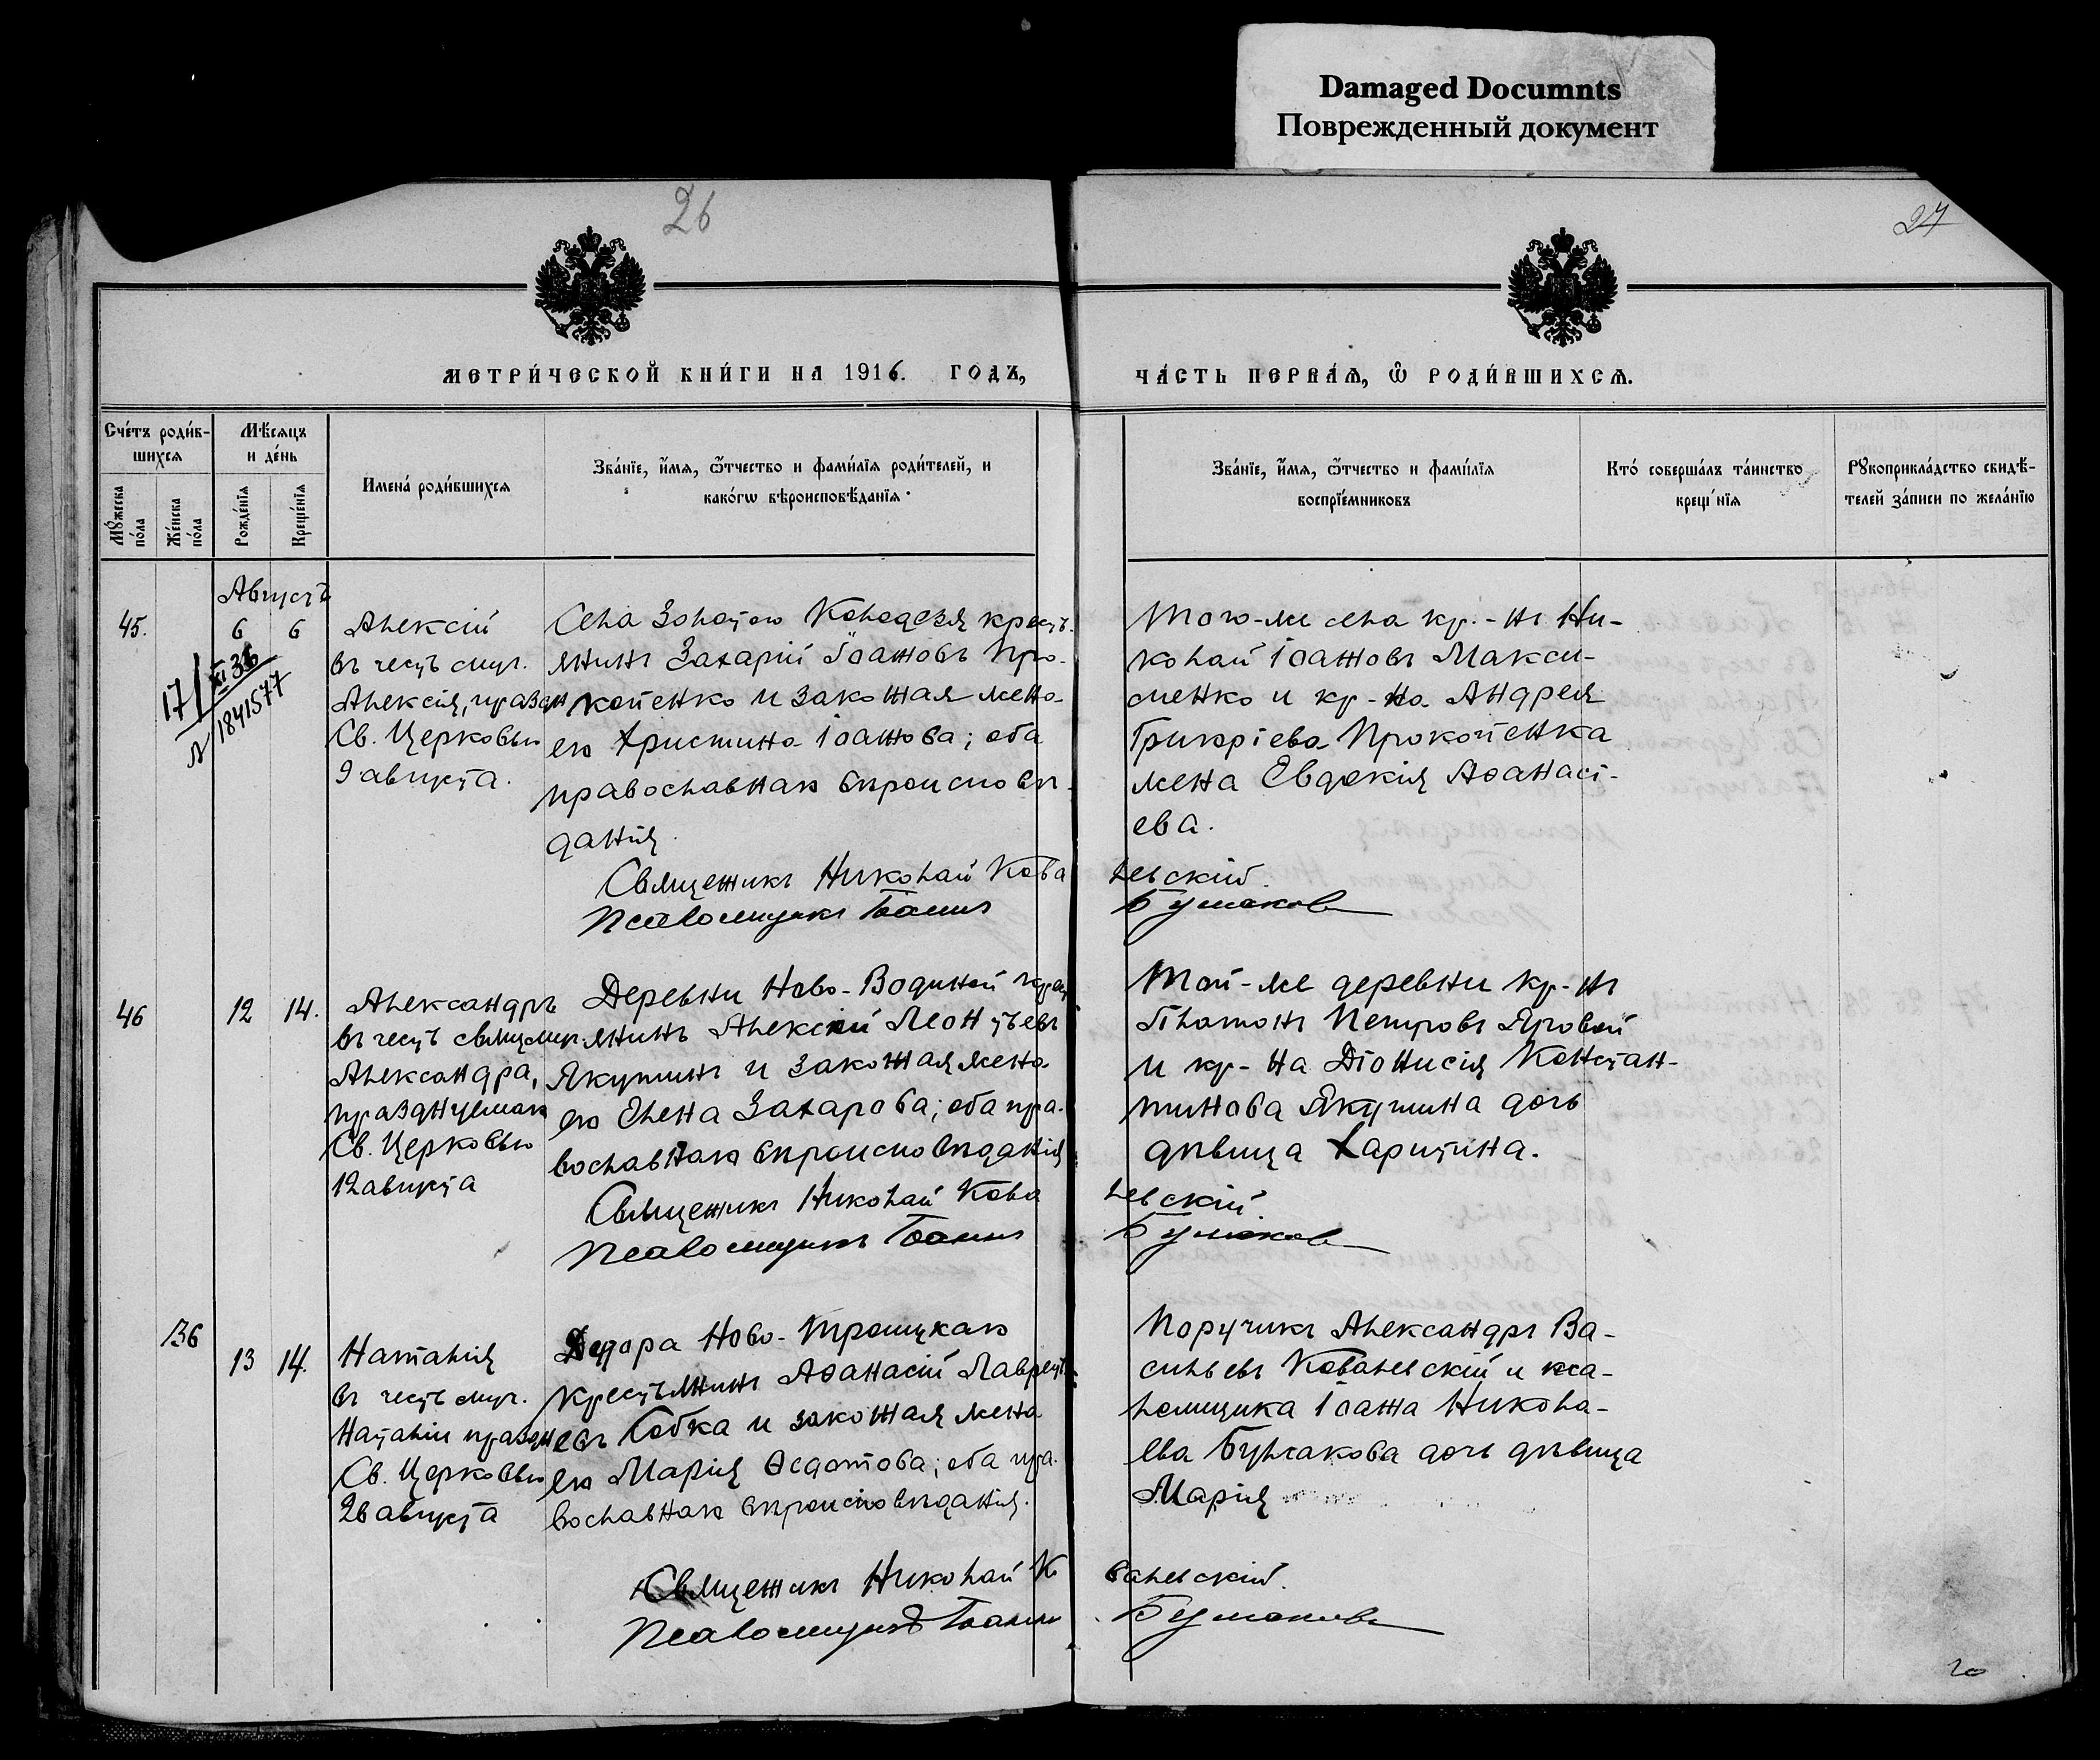 Damaged Documnts
Поврежденный документ
26
27
МЕТРИ́ЧЕСКОЙ КНИ́ГИ НА 1916. ГОДЪ,
ЧА́СТЬ ПЕРВА́Ѧ, Ѽ РОДИ́ВШИХСѦ.
Сче́тъ роди́в-
шихсѧ
Мѣ́сѧцъ
и де́нь
Мꙋ́жеска
по́ла
Же́нска
по́ла
Рожде́нїѧ
Креще́нїѧ
И҆мена̀ роди́вшихсѧ
Зва́нїе, и҆́мѧ, ѻ҆́тчество и фами́лїѧ роди́телей, и
како́гѡ вѣроисповѣ́данїѧ.
Зва́нїе, и҆́мѧ, ѻ҆́тчество и фами́лїѧ
воспрїе́мниковъ
Кто́ соверша́лъ та́инство
крещ нїѧ
Рꙋкоприкла́дство свидѣ́-
телей за́писи по жела́нїю
Августъ
45.
6 6
17/XI 36
№ 1841577
Алексій
въ честь муч.
Алексія, праздн
Св. Церковью
9 августа.
Села Золотого Колодезя кресть-
янинъ Захарій Іоанновъ Про-
копенко и законная жена
его Христина Іоаннова; оба
православнаго вѣроисповѣ-
данія.
Того-же села кр.-нъ Ни-
колай Іоанновъ Макси-
менко и кр-на Андрея
Григоріева Прокопенка
жена Евдокія Аѳанасі-
ева.
Священникъ Николай Ковалевскій.
Псаломщикъ Іоаннъ Булгаковъ
46
12 14.
Александръ
въ честь свящмуч.
Александра,
празднуемаго
Св. Церковью
12 августа
Деревни Ново-Водяной крест
янинъ Алексій Леонтьевъ
Якушинъ и законная жена
его Елена Захарова; оба пра-
вославнаго вѣроисповѣданія
Той-же деревни кр-нъ
Платонъ Петровъ Яровой
и кр-на Діонисія Констан-
тинова Якушина дочь
дѣвица Харитина.
Священникъ Николай Ковалевскій.
Псаломщикъ Іоаннъ Булгаковъ
36
13 14.
Наталія
въ честь муч.
Наталіи праздн
Св. Церковью
26 августа
Хутора Ново-Троицкаго
крестьянинъ Аѳанасій Лаврентъ
евъ Собка и законная жена
его Марія Ѳедотова; оба пра-
вославнаго вѣроисповѣданія.
Поручикъ Александръ Ва-
сильевъ Ковалевскій и пса-
ломщика Іоанна Никола-
ева Булгакова дочь дѣвица
Марія
Священникъ Николай Ковалевскій.
Псаломщикъ Іоаннъ Булгаковъ
20